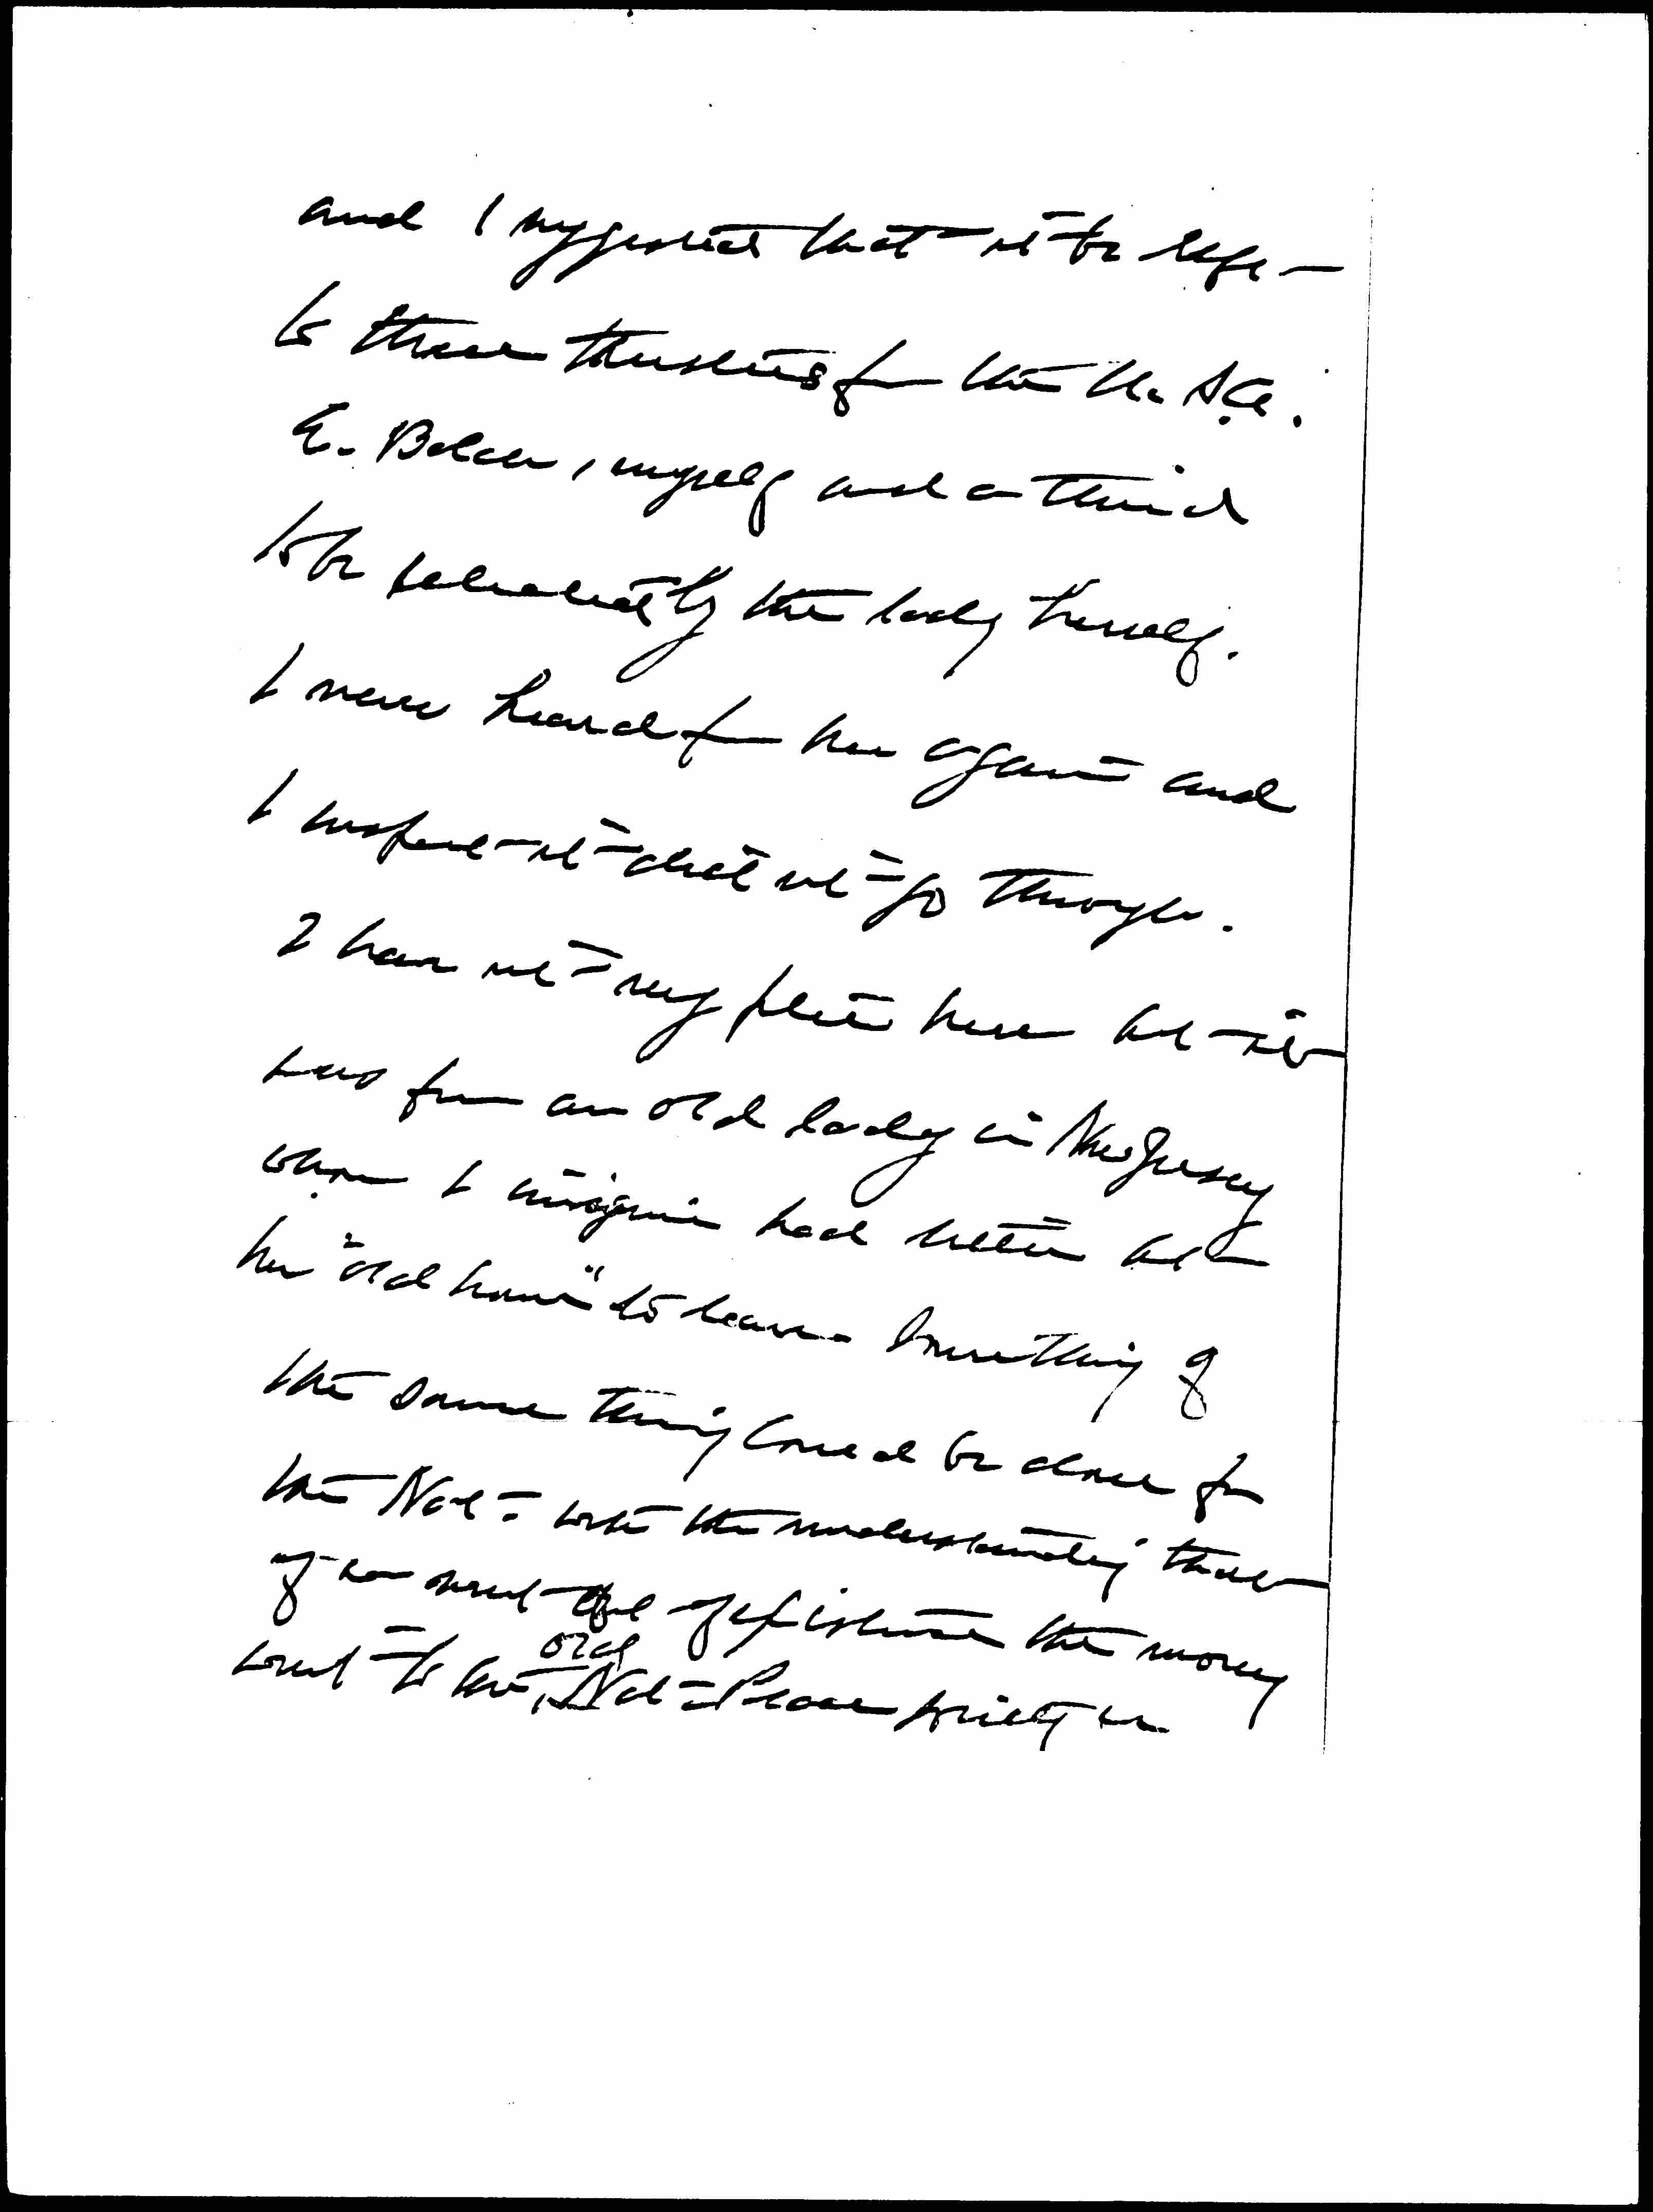 and I suggested that it be left
to three trustees for the U. S. A.
E. Balch, myself and a third
to be selected by the lady herself.
I never heard from her again and
I suspect it did not go through.
I have not my files here but it
was from an old lady in New Jersey
whom I imagine had better let
her "old home" to learn. Something of
the same thing could be done for
the Nat. with the understanding that
if we went out of existence the money
went to the old Nat. Peace Society in